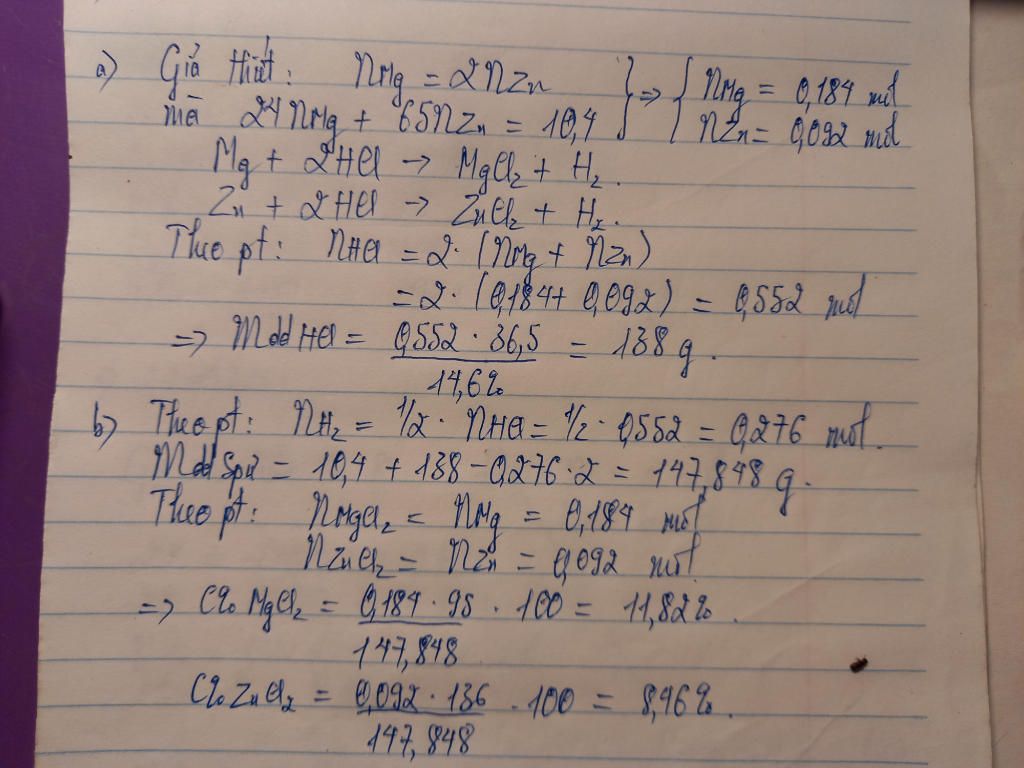 a) Giả thiết: nMg = 2nZn } => { nMg = 0,184 mol
mà 24nMg + 65nZn = 10,4 } { nZn = 0,092 mol
Mg + 2HCl → MgCl₂ + H₂.
Zn + 2HCl → ZnCl₂ + H₂.
Theo pt: nHCl = 2· (nMg + nZn)
= 2· (0,184+ 0,092) = 0,552 mol
=> Mdd HCl = 0,552 · 36,5 = 138 g.
14,6%
b) Theo pt: nH₂ = 1/2· nHCl = 1/2· 0,552 = 0,276 mol.
Mdd Spứ = 10,4 + 138 - 0,276·2 = 147,848 g.
Theo pt: nMgCl₂ = nMg = 0,184 mol
nZnCl₂ = nZn = 0,092 mol.
=> C% MgCl₂ = 0,184 · 95 · 100 = 11,82%.
147,848
C% ZnCl₂ = 0,092 · 136 · 100 = 8,46%.
147,848